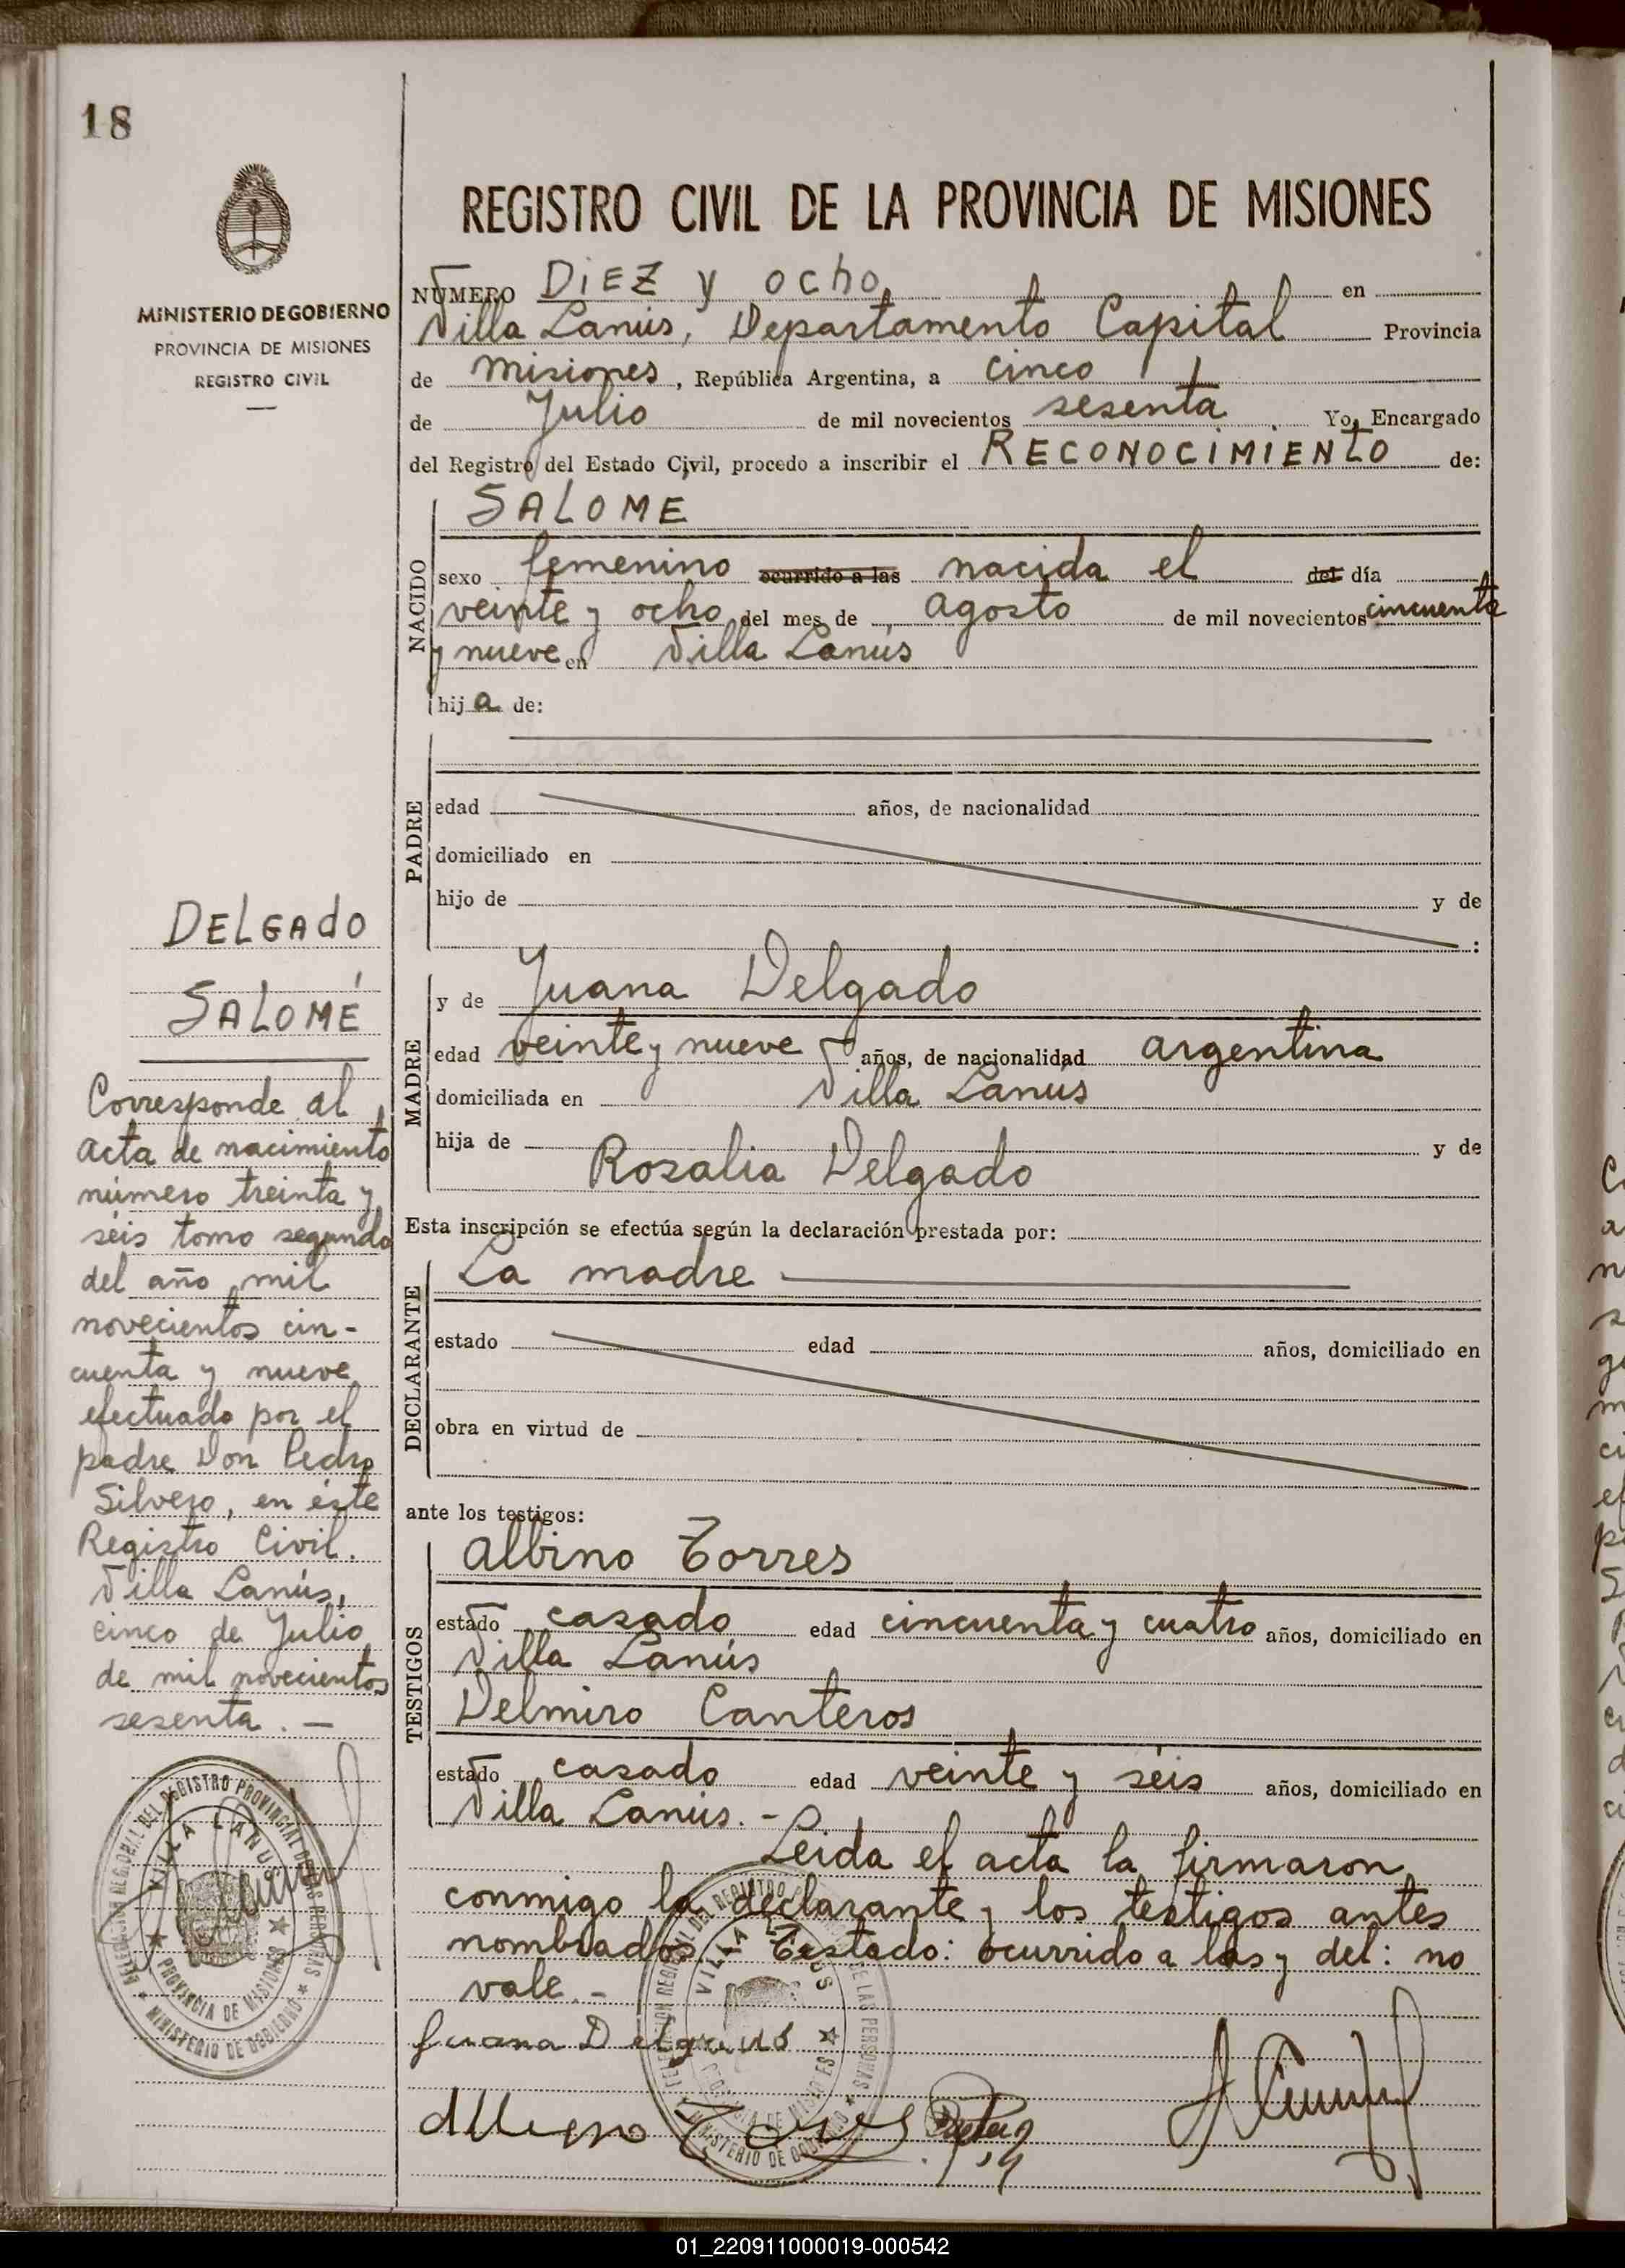 18
MINISTERIO DE GOBIERNO
PROVINCIA DE MISIONES
REGISTRO CIVIL
DELGADO
SALOMÉ
Corresponde al
acta de nacimiento
número treinta y
séis tomo segundo
del año mil
novecientos cin-
cuenta y nueve
efectuado por el
padre Don Pedro
Silvero, en éste
Registro Civil.
Villa Lanús,
cinco de Julio
de mil novecientos
sesenta. —
DEL REGISTRO PROVINCIAL DE LAS PERSONAS
VILLA LANUS
PROVINCIA DE MISIONES
MINISTERIO DE GOBIERNO
REGISTRO CIVIL DE LA PROVINCIA DE MISIONES
NÚMERO DiEZ y ocho en
Villa Lanús, Departamento Capital Provincia
de Misiones, República Argentina, a cinco
de Julio de mil novecientos sesenta Yo, Encargado
del Registro del Estado Civil, procedo a inscribir el RECONOCIMIENTO de:
NACIDO
SALOME
sexo femenino ocurrido a las nacida el del día
veinte y ocho del mes de Agosto de mil novecientos cincuenta
y nueve en Villa Lanús
hija de:
PADRE
edad años, de nacionalidad
domiciliado en
hijo de y de
:
MADRE
y de Juana Delgado
edad veinte y nueve años, de nacionalidad argentina
domiciliada en Villa Lanús
hija de y de
Rosalia Delgado
Esta inscripción se efectúa según la declaración prestada por:
DECLARANTE
La madre
estado edad años, domiciliado en
obra en virtud de
ante los testigos:
TESTIGOS
Albino Torres
estado casado edad cincuenta y cuatro años, domiciliado en
Villa Lanús
Delmiro Canteros
estado casado edad veinte y séis años, domiciliado en
Villa Lanús. -
Leida el acta la firmaron
conmigo la declarante y los testigos antes
nombrados. Testado: ocurrido a las y del: no
vale. -
VILLA LANUS
MINISTERIO DE GOBIERNO
Juana Delgado
Torres
01_220911000019-000542